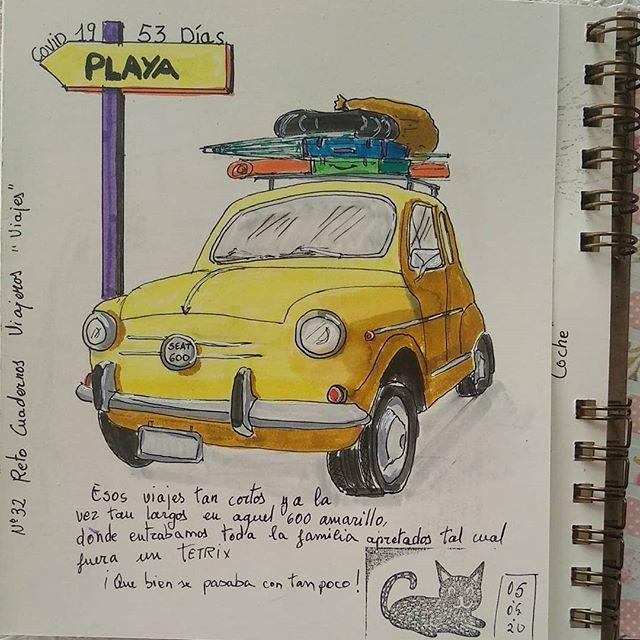 Covid 19 53 Días
PLAYA
Nº 32 Reto Cuadernos Viajeros "Viajes"
SEAT
600
Coche
Esos viajes tan cortos y a la
vez tan largos en aquel 600 amarillo,
dónde entrabamos toda la familia apretados tal cual
fuera un TETRIX
¡Que bien se pasaba con tan poco!
05
05
20